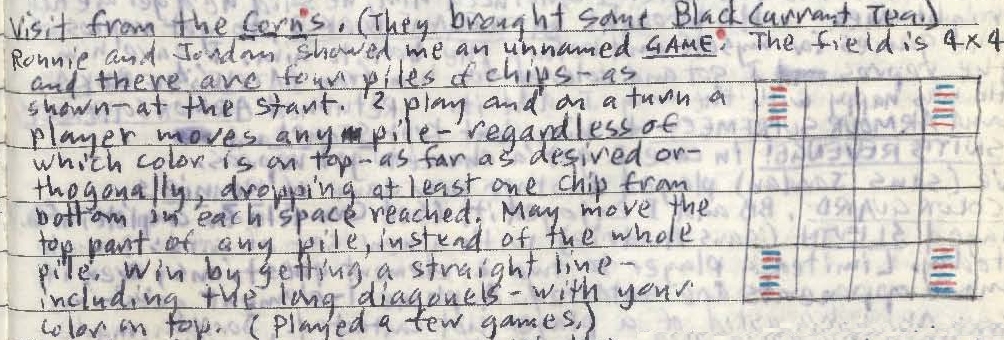 Visit from the Corn's. (They brought some Black Currant Tea.)
Ronnie and Jordan showed me an unnamed GAME. The field is 4x4
and there are four piles of chips-as
shown-at the start. 2 play and on a turn a
player moves any pile- regardless of
which color is on top-as far as desired or-
thogonally, dropping at least one chip from
bottom in each space reached. May move the
top part of any pile, instead of the whole
pile. Win by getting a straight line-
including the long diagonels- with your
color on top. (Played a few games.)